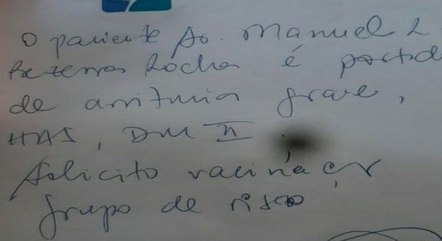 O paciente Sr. Manuel
Bezerra Rocha é portad
de arritmia grave,
HAS, DM II
Solicito vacina
grupo de risco